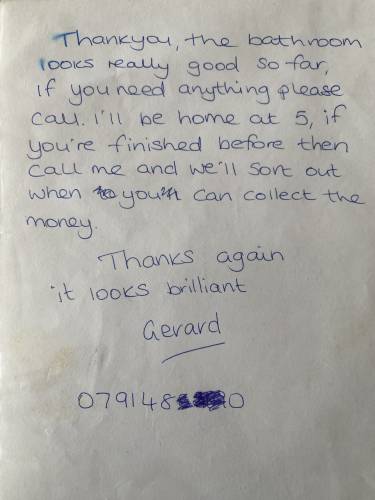 Thankyou, the bathroom
looks really good so far,
if you need anything please
call. I'll be home at 5, if
you're finished before then
call me and we'll sort out
when you can collect the
money.
Thanks again
it looks brilliant
Gerard
079148 0